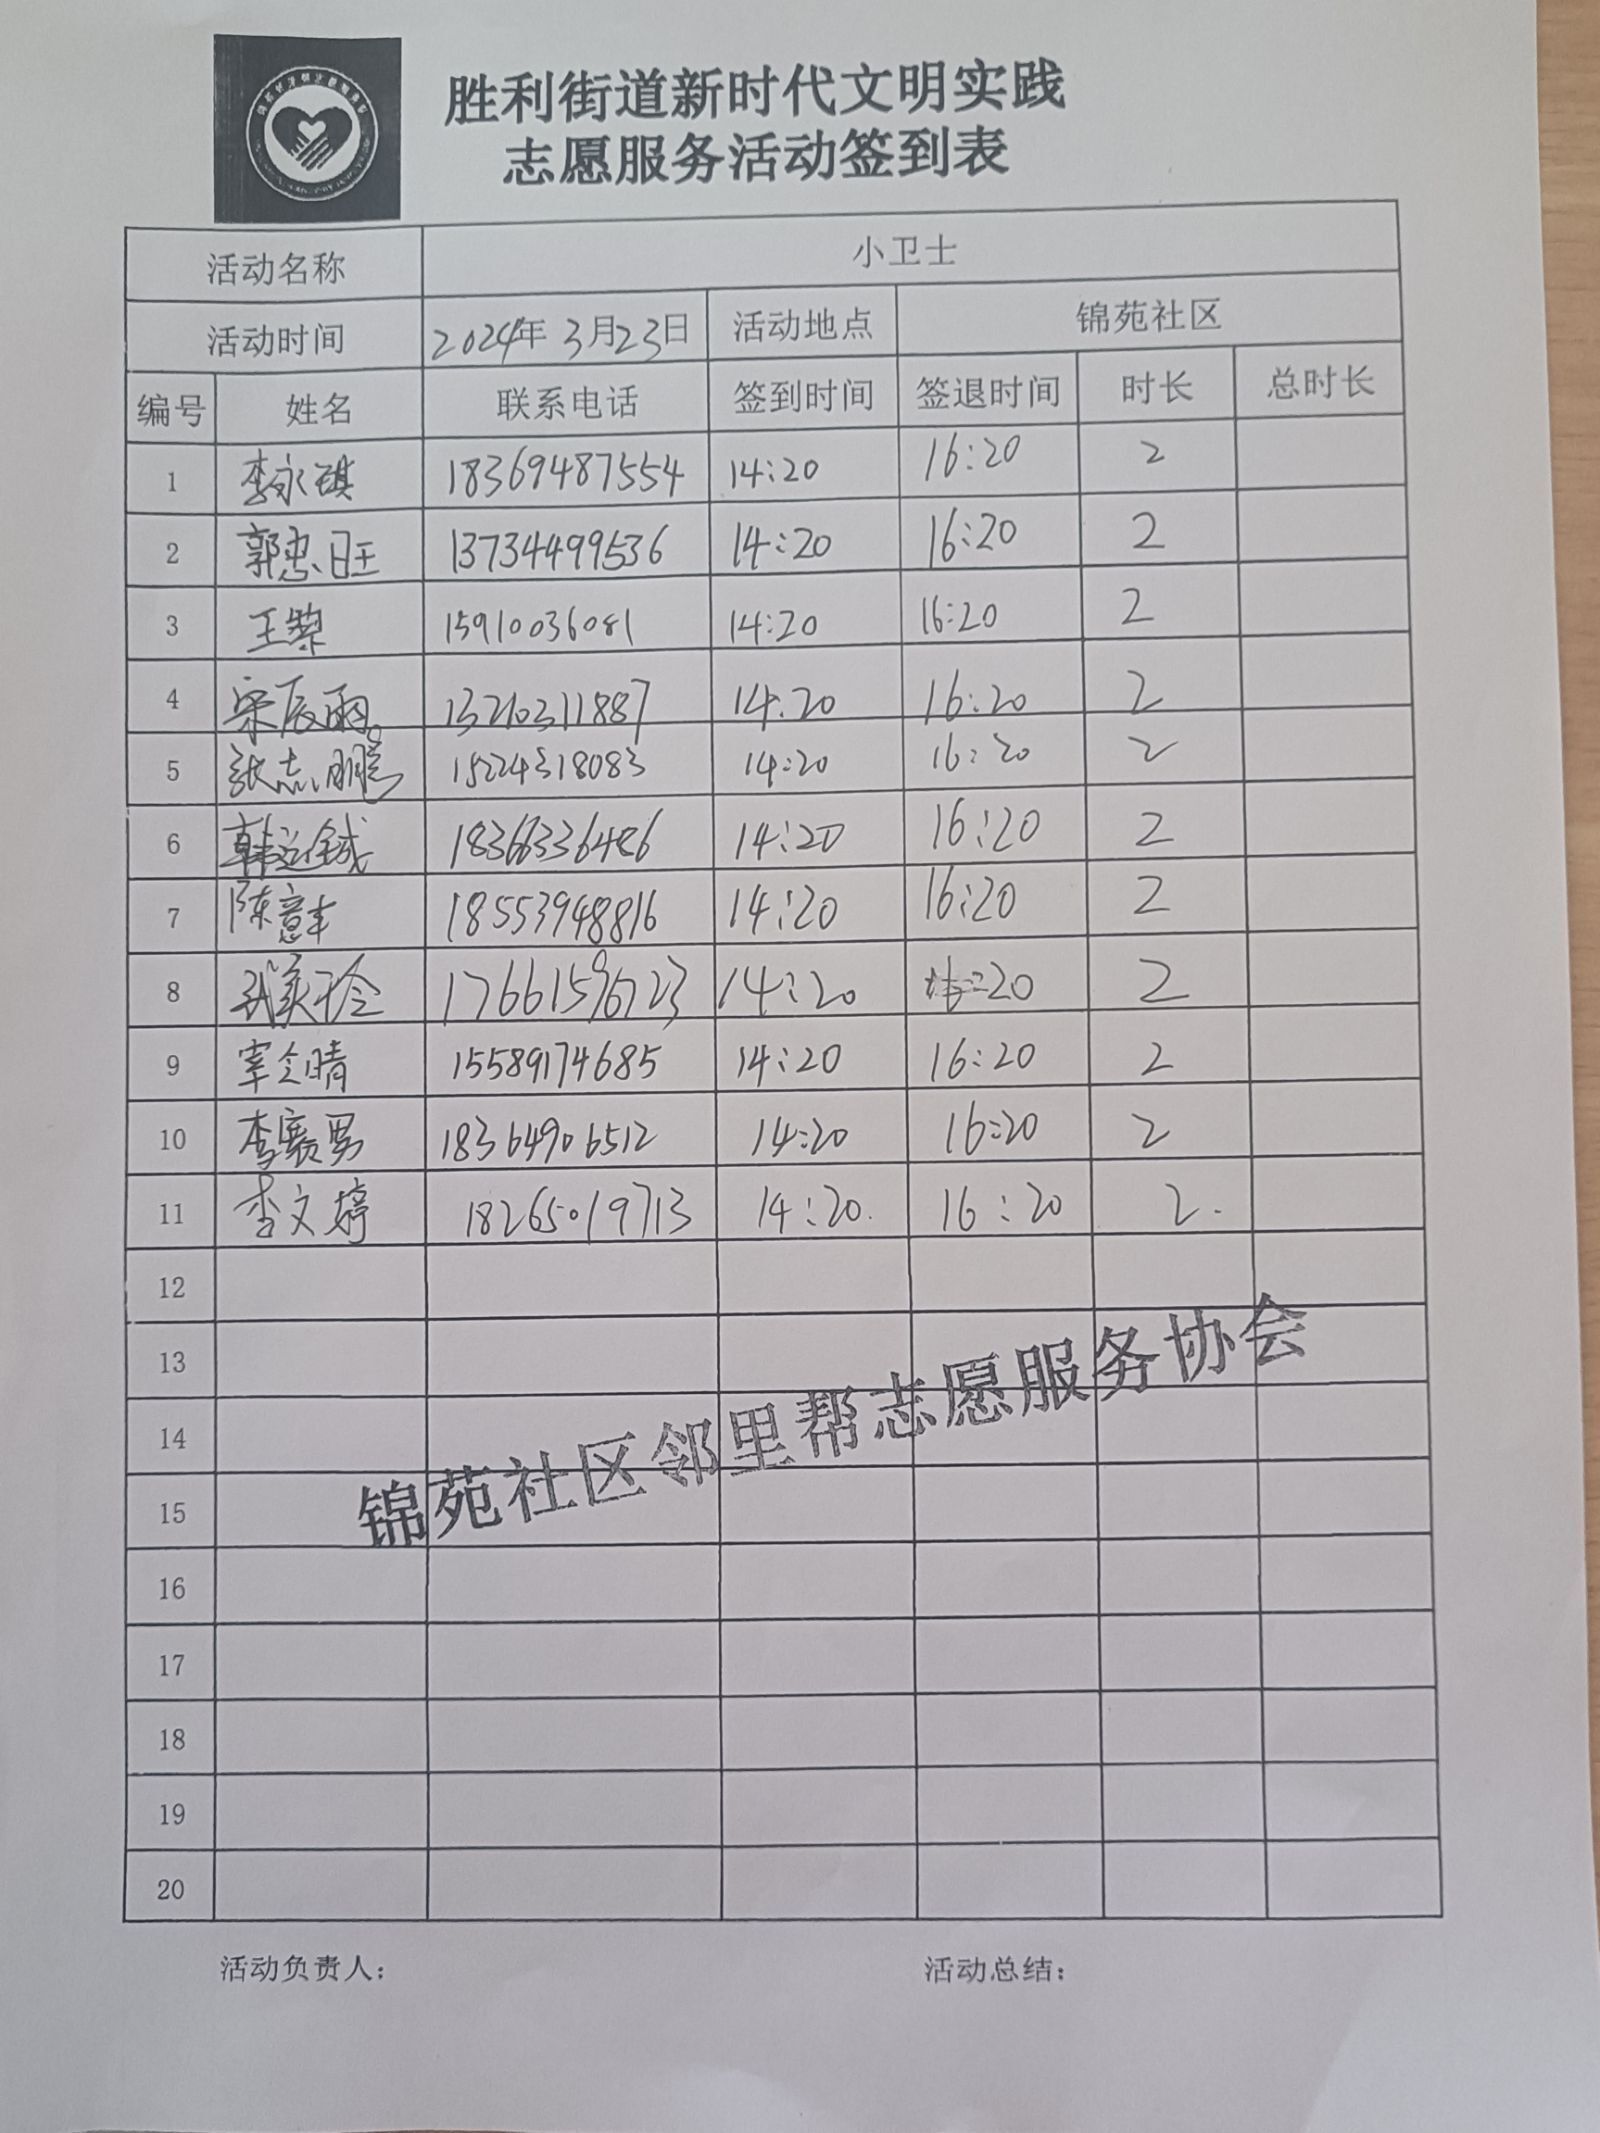 胜利街道新时代文明实践
志愿服务活动签到表
活动名称 小卫士
活动时间 2024年 3月23日 活动地点 锦苑社区
编号 姓名 联系电话 签到时间 签退时间 时长 总时长
1 李永琪 18369487554 14:20 16:20 2
2 郭忠旺 13734499536 14:20 16:20 2
3 王黎 15910036081 14:20 16:20 2
4 宋辰雨 13210311887 14:20 16:20 2
5 张志鹏 15224318083 14:20 16:20 2
6 韩 18366336486 14:20 16:20 2
7 陈意丰 18553948816 14:20 16:20 2
8 14:20 :20 2
9 晴 15589174685 14:20 16:20 2
10 李赛男 18364906512 14:20 16:20 2
11 李文婷 18265019713 14:20. 16:20 2.
12
13
14
15
16
17
18
19
20
锦苑社区邻里帮志愿服务协会
活动负责人: 活动总结: